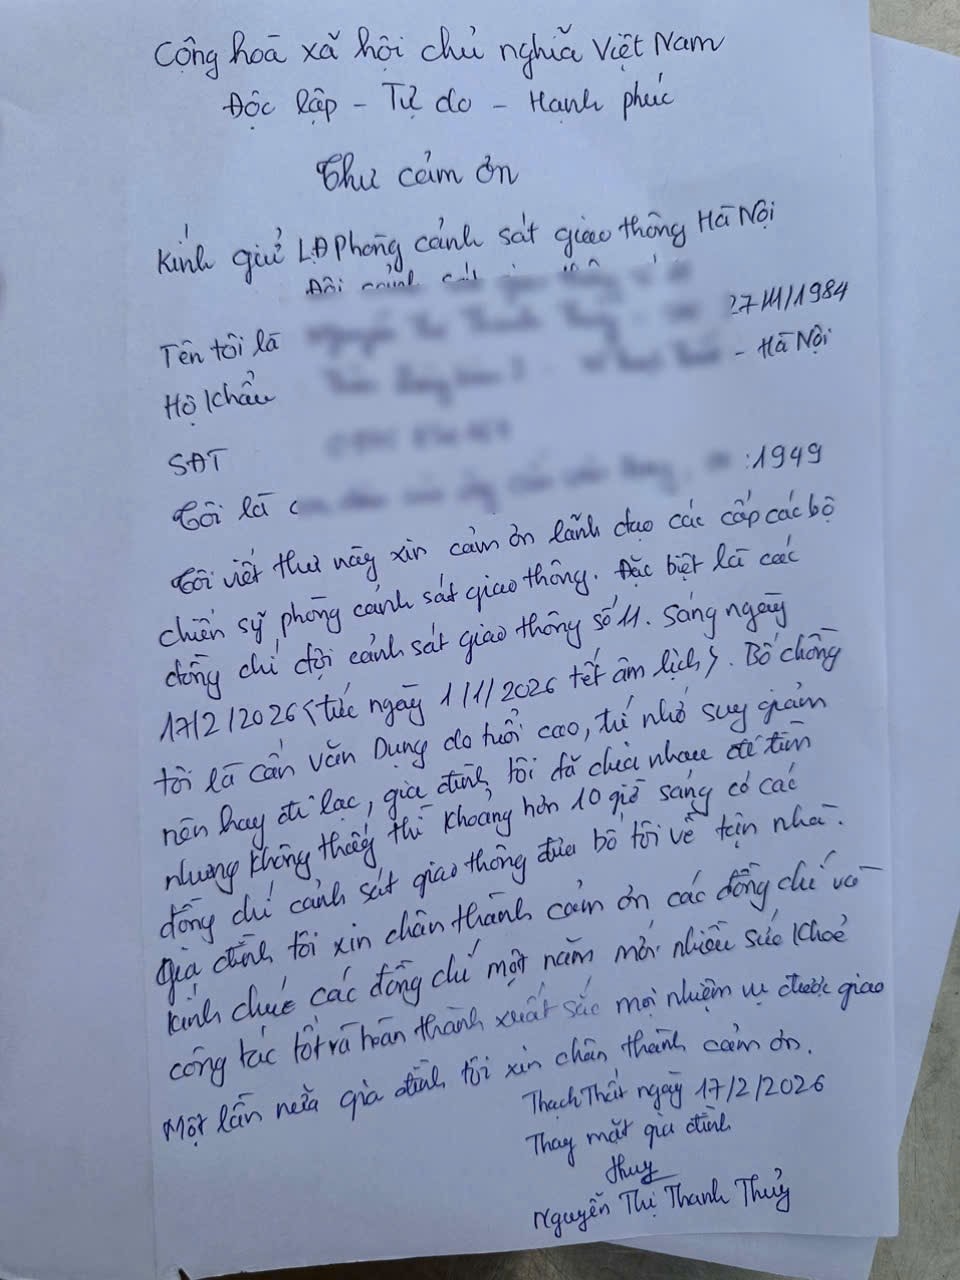 Cộng hoà xã hội chủ nghĩa Việt Nam
Độc lập - Tự do - Hạnh phúc
Thư cảm ơn
Kính gửi LĐ Phòng cảnh sát giao thông Hà Nội
Đội cảnh
Tên tôi là 27/11/1984
Hộ khẩu - Hà Nội
SĐT
Tôi là :1949
Tôi viết thư này xin cảm ơn lãnh đạo các cấp các bộ
chiến sỹ phòng cảnh sát giao thông. Đặc biệt là các
đồng chí đội cảnh sát giao thông số 11. Sáng ngày
17/2/2026 <tức ngày 1/1/2026 tết âm lịch>. Bố chồng
tôi là Cấn Văn Dụng do tuổi cao, trí nhớ suy giảm
nên hay đi lạc, gia đình tôi đã chia nhau đi tìm
nhưng không thấy thì khoảng hơn 10 giờ sáng có các
đồng chí cảnh sát giao thông đưa bố tôi về tận nhà.
Gia đình tôi xin chân thành cảm ơn các đồng chí và
kính chúc các đồng chí một năm mới nhiều sức khoẻ
công tác tốt và hoàn thành xuất sắc mọi nhiệm vụ được giao
Một lần nữa gia đình tôi xin chân thành cảm ơn.
Thạch Thất ngày 17/2/2026
Thay mặt gia đình
Thuỷ
Nguyễn Thị Thanh Thuỷ